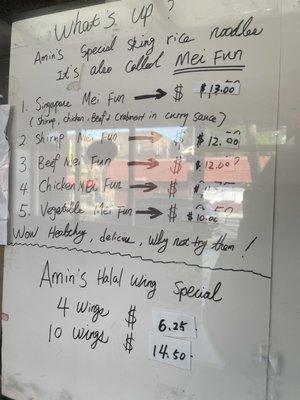 What's Up?
Amin's Special Sking rice noodles
It's also Called Mei Fun
1. Singapore Mei Fun → $ $13.00
(shrimp, chicken, Beef & Crabmeat in curry sauce)
2. Shrimp Mei Fun → $ $12.00
3 Beef Mei Fun → $ $12.00
4 Chicken Mei Fun → $
5. Vegetable Mei Fun → $ $10.00
Wow Healthy, delicious, Why not try them!
Amin's Halal Wing Special
4 Wings $ 6.25
10 Wings $ 14.50